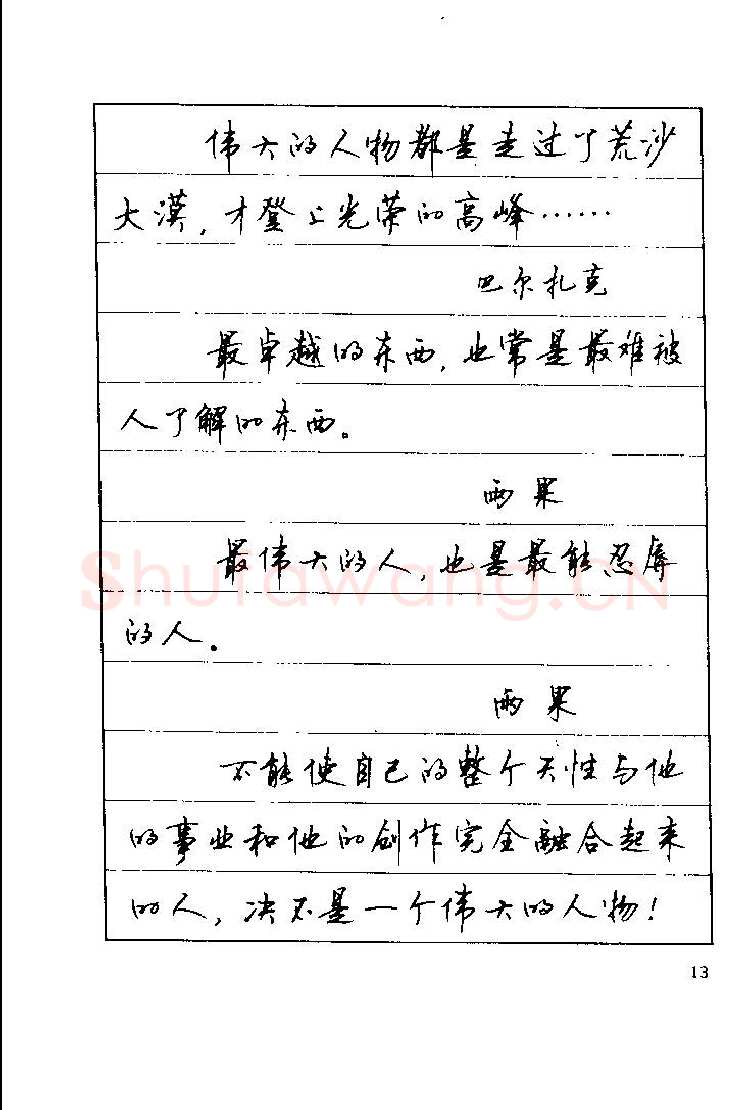 伟大的人物都是走过了荒沙
大漠，才登上光荣的高峰……
巴尔扎克
最卓越的东西，也常是最难被
人了解的东西。
雨果
最伟大的人，也是最能忍辱
的人。
雨果
不能使自己的整个天性与他
的事业和他的创作完全融合起来
的人，决不是一个伟大的人物！
13
Shufawang.CN